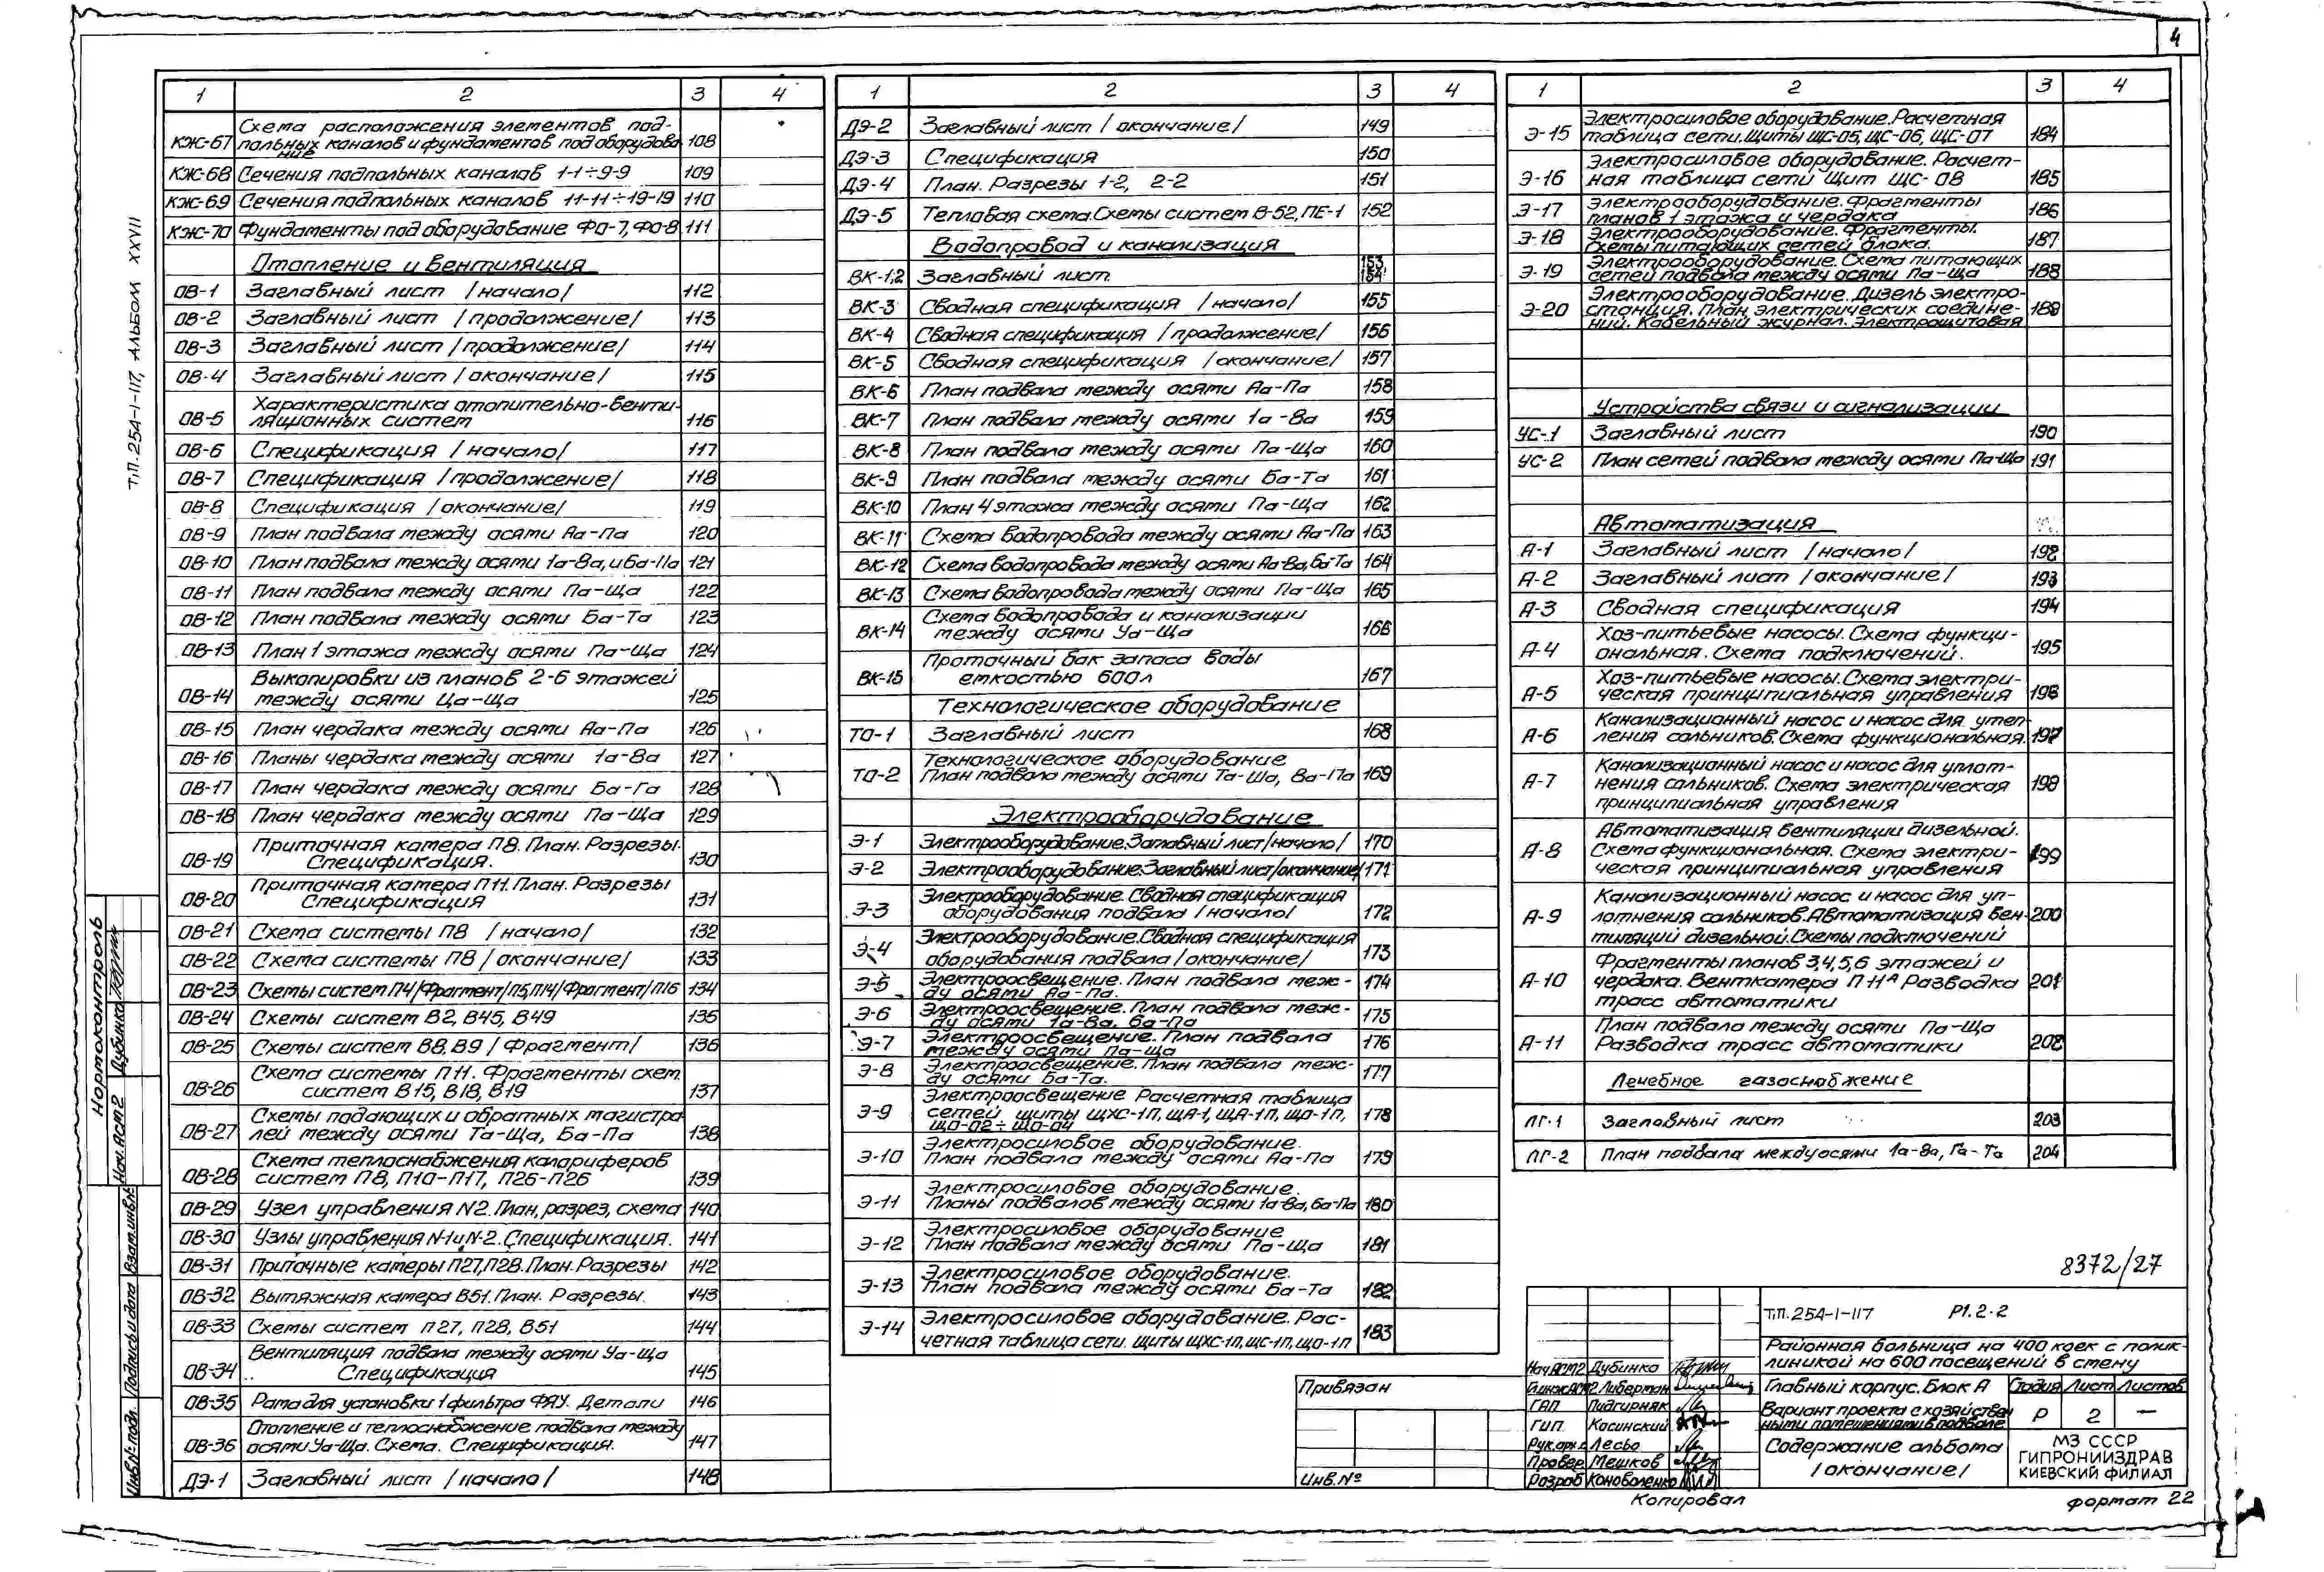 4
Т.П. 254-1-117, АЛЬБОМ XXVII
1 2 3 4
КЖ-67 Схема расположения элементов под-
польных каналов и фундаментов под оборудова
ние 108
КЖ-68 Сечения подпольных каналов 1-1÷9-9 109
КЖ-69 Сечения подпольных каналов 11-11÷19-19 110
КЖ-70 Фундаменты под оборудование ФО-7, ФО-8 111
Отопление и вентиляция
ОВ-1 Заглавный лист /начало/ 112
ОВ-2 Заглавный лист /продолжение/ 113
ОВ-3 Заглавный лист /продолжение/ 114
ОВ-4 Заглавный лист /окончание/ 115
ОВ-5 Характеристика отопительно-венти-
ляционных систем 116
ОВ-6 Спецификация /начало/ 117
ОВ-7 Спецификация /продолжение/ 118
ОВ-8 Спецификация /окончание/ 119
ОВ-9 План подвала между осями Аа-Па 120
ОВ-10 План подвала между осями 1а-8а, и Ба-Па 121
ОВ-11 План подвала между осями Па-Ща 122
ОВ-12 План подвала между осями Ба-Та 123
ОВ-13 План 1 этажа между осями Па-Ща 124
ОВ-14 Выкопировки из планов 2-6 этажей
между осями Ца-Ща 125
ОВ-15 План чердака между осями Аа-Па 126
ОВ-16 Планы чердака между осями 1а-8а 127
ОВ-17 План чердака между осями Ба-Га 128
ОВ-18 План чердака между осями Па-Ща 129
ОВ-19 Приточная камера П8. План. Разрезы.
Спецификация. 130
ОВ-20 Приточная камера П11. План. Разрезы
Спецификация 131
ОВ-21 Схема системы П8 /начало/ 132
ОВ-22 Схема системы П8 /окончание/ 133
ОВ-23 Схемы систем П4/Фрагмент/П5,П14/Фрагмент/П16 134
ОВ-24 Схемы систем В2, В45, В49 135
ОВ-25 Схемы систем В8, В9 /Фрагмент/ 136
ОВ-26 Схема системы П11. Фрагменты схем
систем В15, В18, В19 137
ОВ-27 Схемы подающих и обратных магистра
лей между осями Та-Ща, Ба-Па 138
ОВ-28 Схема теплоснабжения калориферов
систем П8, П10-П17, П26-П26 139
ОВ-29 Узел управления N2. План, разрез, схема 140
ОВ-30 Узлы управления N-1 и N-2. Спецификация. 141
ОВ-31 Приточные камеры П27, П28. План. Разрезы 142
ОВ-32 Вытяжная камера В51. План. Разрезы. 143
ОВ-33 Схемы систем П27, П28, В51 144
ОВ-34 Вентиляция подвала между осями Уа-Ща
Спецификация 145
ОВ-35 Рама для установки 1 фильтра ФЯУ. Детали 146
ОВ-36 Отопление и теплоснабжение подвала между
осями Уа-Ща. Схема. Спецификация. 147
ДЭ-1 Заглавный лист /начало/ 148
1 2 3 4
ДЭ-2 Заглавный лист /окончание/ 149
ДЭ-3 Спецификация 150
ДЭ-4 План. Разрезы 1-2, 2-2 151
ДЭ-5 Тепловая схема. Схемы систем В-52, ПЕ-1 152
Водопровод и канализация
ВК-1,2 Заглавный лист. 153
154
ВК-3 Сводная спецификация /начало/ 155
ВК-4 Сводная спецификация /продолжение/ 156
ВК-5 Сводная спецификация /окончание/ 157
ВК-6 План подвала между осями Аа-Па 158
ВК-7 План подвала между осями 1а-8а 159
ВК-8 План подвала между осями Па-Ща 160
ВК-9 План подвала между осями Ба-Та 161
ВК-10 План 4 этажа между осями Па-Ща 162
ВК-11 Схема водопровода между осями Аа-Па 163
ВК-12 Схема водопровода между осями Аа-8а, Ба-Та 164
ВК-13 Схема водопровода между осями Па-Ща 165
ВК-14 Схема водопровода и канализации
между осями Уа-Ща 166
ВК-15 Проточный бак запаса воды
емкостью 600л 167
Технологическое оборудование
ТО-1 Заглавный лист 168
ТО-2 Технологическое оборудование
План подвала между осями Та-Ша, 8а-17а 169
Электрооборудование
Э-1 Электрооборудование. Заглавный лист /начало/ 170
Э-2 Электрооборудование. Заглавный лист /окончание/ 171
Э-3 Электрооборудование. Сводная спецификация
оборудования подвала /начало/ 172
Э-4 Электрооборудование. Сводная спецификация
оборудования подвала /окончание/ 173
Э-5 Электроосвещение. План подвала меж-
ду осями Аа-Па. 174
Э-6 Электроосвещение. План подвала меж-
ду осями 1а-8а, ба-Па 175
Э-7 Электроосвещение. План подвала
между осями Па-Ща 176
Э-8 Электроосвещение. План подвала меж-
ду осями Ба-Та. 177
Э-9 Электроосвещение Расчетная таблица
сетей щиты ЩХС-1П, ЩА-1, ЩА-1П, ЩО-1П,
ЩО-02÷ЩО-04 178
Э-10 Электросиловое оборудование.
План подвала между осями Аа-Па 179
Э-11 Электросиловое оборудование.
Планы подвалов между осями 1а-8а, ба-Па 180
Э-12 Электросиловое оборудование
План подвала между осями Па-Ща 181
Э-13 Электросиловое оборудование.
План подвала между осями Ба-Та 182
Э-14 Электросиловое оборудование. Рас-
четная таблица сети. щиты ЩХС-1П, ЩС-1П, ЩО-1П 183
1 2 3 4
Э-15 Электросиловое оборудование. Расчетная
таблица сети. Щиты ЩС-05, ЩС-06, ЩС-07 184
Э-16 Электросиловое оборудование. Расчет-
ная таблица сети Щит ЩС-08 185
Э-17 Электрооборудование. Фрагменты
планов 1 этажа и чердака 186
Э-18 Электрооборудование. Фрагменты.
Схемы питающих сетей блока. 187
Э-19 Электрооборудование. Схема питающих
сетей подвала между осями Па-Ща 188
Э-20 Электрооборудование. Дизель электро-
станция. План электрических соедине-
ний. Кабельный журнал. Электрощитовая 189
Устройства связи и сигнализации
УС-1 Заглавный лист 190
УС-2 План сетей подвала между осями Па-Ща 191
Автоматизация
А-1 Заглавный лист /начало/ 192
А-2 Заглавный лист /окончание/ 193
А-3 Сводная спецификация 194
А-4 Хоз-питьевые насосы. Схема функци-
ональная. Схема подключений. 195
А-5 Хоз-питьевые насосы. Схема электри-
ческая принципиальная управления 196
А-6 Канализационный насос и насос для упел-
ления сальников. Схема функциональная. 197
А-7 Канализационный насос и насос для уплот-
нения сальников. Схема электрическая
принципиальная управления 198
А-8 Автоматизация вентиляции дизельной.
Схема функциональная. Схема электри-
ческая принципиальная управления 199
А-9 Канализационный насос и насос для уп-
лотнения сальников. Автоматизация вен-
тиляций дизельной. Схемы подключений 200
А-10 Фрагменты планов 3,4,5,6 этажей и
чердака. Венткамера П11А Разводка
трасс автоматики 201
А-11 План подвала между осями Па-Ща
Разводка трасс автоматики 202
Лечебное газоснабжение
ЛГ-1 Заглавный лист 203
ЛГ-2 План подвала между осями 1а-8а, Га-Та 204
8372/27
Т.П. 254-1-117 Р1.2-2
Районная больница на 400 коек с полик-
линикой на 600 посещений в смену
Главный корпус. Блок А
Вариант проекта с хозяйствен
ными помещениями в подвале
Стадия Лист Листов
Р 2 —
Содержание альбома
/окончание/
МЗ СССР
ГИПРОНИИЗДРАВ
КИЕВСКИЙ ФИЛИАЛ
Нач АСМ2 Дубинко
Гл.инж АСМ2 Либерман
ГАП Пидгирняк
ГИП Косинский
Рук.арх.г Лесьо
Провер Мешков
Разраб Коноваленко
Привязан
Инв.№
Копировал
формат 22
Нормоконтроль
Нач. АСМ2 Дубинко
Взам.инв.№
Подпись и дата
Инв.№ подл.